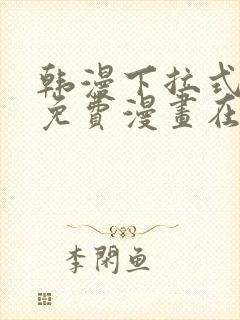 韩漫下拉式
免費漫畫在
李閑鱼